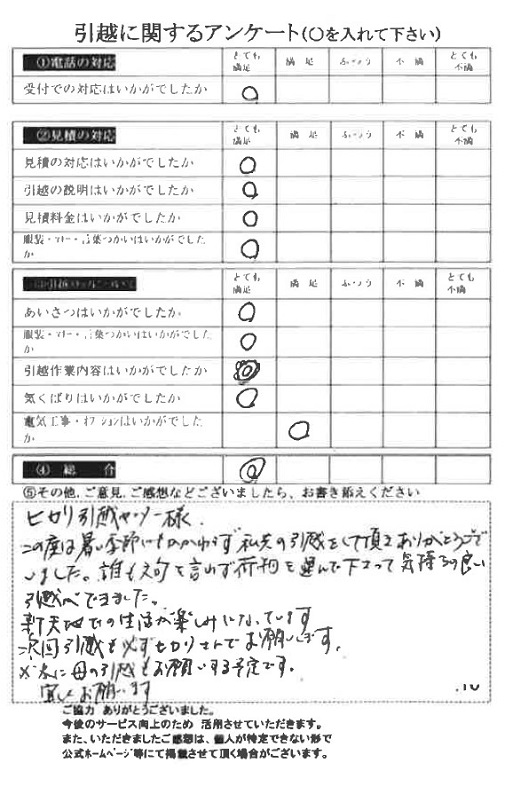 引越に関するアンケート(○を入れて下さい)
①電話の対応 とても満足 満足 ふつう 不満 とても不満
受付での対応はいかがでしたか ○
②見積の対応 とても満足 満足 ふつう 不満 とても不満
見積の対応はいかがでしたか ○
引越の説明はいかがでしたか ○
見積料金はいかがでしたか ○
服装・マナー・言葉つかいはいかがでしたか ○
とても満足 満足 ふつう 不満 とても不満
あいさつはいかがでしたか ○
服装・マナー・言葉つかいはいかがでしたか ○
引越作業内容はいかがでしたか ◎
気くばりはいかがでしたか ○
電気工事・オプションはいかがでしたか ○
④ 総 合 ◎
⑤その他、ご意見、ご感想などございましたら、お書き添えください
ヒカリ引越センター様.
この度は暑い季節にもかかわらず私共の引越をして頂きありがとうござ
いました。誰も文句を言わず荷物を運んで下さって気持ちの良い
引越ができました。
新天地での生活が楽しみになっています
次回引越も必ずヒカリさんでお願いします。
※次に母の引越もお願いする予定です。
宜しくお願います
ご協力 ありがとうございました。
今後のサービス向上のため 活用させていただきます。
また、いただきましたご感想は、個人が特定できない形で
公式ホームページ等にて掲載させて頂く場合がございます。